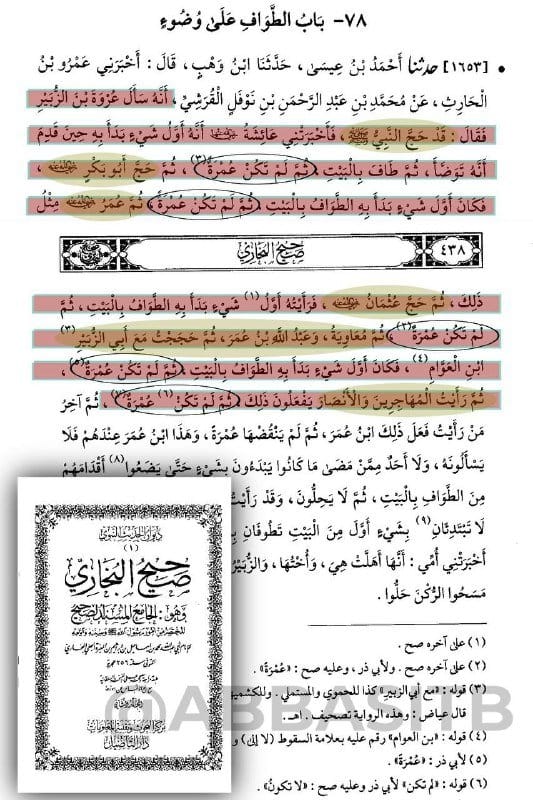 ٧٨- بَابُ الطَّوَافِ عَلَىٰ وُضُوءٍ
• [١٦٥٣] حدثنا أَحْمَدُ بْنُ عِيسَىٰ ، حَدَّثَنَا ابْنُ وَهْبٍ ، قَالَ : أَخْبَرَنِي عَمْرُو بْنُ
الْحَارِثِ ، عَنْ مُحَمَّدِ بْنِ عَبْدِ الرَّحْمَنِ بْنِ نَوْفَلٍ الْقُرَشِيِّ ، أَنَّهُ سَأَلَ عُرْوَةَ بْنَ الزُّبَيْرِ
فَقَالَ : قَدْ حَجَّ النَّبِيُّ ﷺ ، فَأَخْبَرَتْنِي عَائِشَةُ أَنَّهُ أَوَّلُ شَيْءٍ بَدَأَ بِهِ حِينَ قَدِمَ
أَنَّهُ تَوَضَّأَ ، ثُمَّ طَافَ بِالْبَيْتِ ، ثُمَّ لَمْ تَكُنْ عُمْرَةٌ (٣) ، ثُمَّ حَجَّ أَبُو بَكْرٍ ،
فَكَانَ أَوَّلَ شَيْءٍ بَدَأَ بِهِ الطَّوَافُ بِالْبَيْتِ ، ثُمَّ لَمْ تَكُنْ عُمْرَةٌ ، ثُمَّ عُمَرُ مِثْلُ
٤٣٨ صَحِيحُ الْبُخَارِيِّ
ذَلِكَ ، ثُمَّ حَجَّ عُثْمَانُ ، فَرَأَيْتُهُ أَوَّلُ (١) شَيْءٍ بَدَأَ بِهِ الطَّوَافُ بِالْبَيْتِ ، ثُمَّ
لَمْ تَكُنْ عُمْرَةٌ (٢) ، ثُمَّ مُعَاوِيَةُ ، وَعَبْدُ اللَّهِ بْنُ عُمَرَ ، ثُمَّ حَجَجْتُ مَعَ أَبِي الزُّبَيْرِ (٣)
ابْنِ الْعَوَّامِ (٤) ، فَكَانَ أَوَّلَ شَيْءٍ بَدَأَ بِهِ الطَّوَافُ بِالْبَيْتِ ، ثُمَّ لَمْ تَكُنْ عُمْرَةٌ (٥) ،
ثُمَّ رَأَيْتُ الْمُهَاجِرِينَ وَالْأَنْصَارَ يَفْعَلُونَ ذَلِكَ ، ثُمَّ لَمْ تَكُنْ (٦) عُمْرَةٌ ، ثُمَّ آخِرُ
مَنْ رَأَيْتُ فَعَلَ ذَلِكَ ابْنُ عُمَرَ ، ثُمَّ لَمْ يَنْقُضْهَا عُمْرَةً ، وَهَذَا ابْنُ عُمَرَ عِنْدَهُمْ فَلَا
يَسْأَلُونَهُ ، وَلَا أَحَدٌ مِمَّنْ مَضَىٰ مَا كَانُوا يَبْدَءُونَ بِشَيْءٍ حَتَّىٰ يَضَعُوا (٨) أَقْدَامَهُمْ
مِنَ الطَّوَافِ بِالْبَيْتِ ، ثُمَّ لَا يَحِلُّونَ ، وَقَدْ رَأَيْتُ
لَا تَبْتَدِئَانِ (٩) بِشَيْءٍ أَوَّلَ مِنَ الْبَيْتِ تَطُوفَانِ بِهِ
أَخْبَرَتْنِي أُمِّي : أَنَّهَا أَهَلَّتْ هِيَ ، وَأُخْتُهَا ، وَالزُّبَيْرُ
مَسَحُوا الرُّكْنَ حَلُّوا .
(١) على آخره صح .
(٢) على آخره صح . ولأبي ذر ، وعليه صح : «عُمْرَةً» .
(٣) قوله : «مع أبي الزبير» كذا للحموي والمستملي . وللكشميه
قال عياض : وهذه الرواية تصحيف . اهـ .
(٤) قوله : «بن العوام» رقم عليه بعلامة السقوط (لا إلى) و
(٥) لأبي ذر وعليه صح : «عُمْرَةً» .
(٦) قوله : «لم تكن» لأبي ذر وعليه صح : «لا تكونُ» .
ديوان الحديث النبوي
(١)
صحيح البخاري
وهو : الجامع المسند الصحيح
دار التأصيل
@ABBASITB